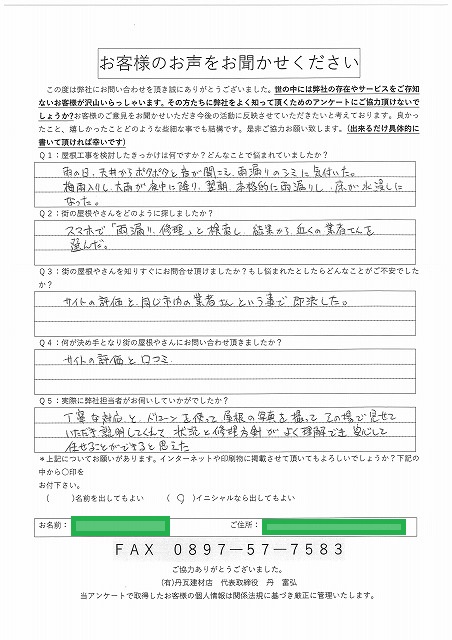 お客様のお声をお聞かせください
この度は弊社にお問い合わせを頂き誠にありがとうございました。世の中には弊社の存在やサービスをご存知
ないお客様が沢山いらっしゃいます。その方たちに弊社をよく知って頂くためのアンケートにご協力頂けないで
しょうか?お客様のご意見をお聞かせいただき今後の活動に反映させていただきたいと考えております。良かっ
たこと、嬉しかったことどのような些細な事でも結構です。是非ご協力お願い致します。(出来るだけ具体的に
書いて頂ければ幸いです)
Q1：屋根工事を検討したきっかけは何ですか？どんなことで悩まれていましたか？
雨の日、天井からポタポタと音が聞こえ、雨漏りのシミに気付いた。
梅雨入りし、大雨が夜中に降り、翌朝、本格的に雨漏りし、床が水浸しに
なった。
Q2：街の屋根やさんをどのように探しましたか？
スマホで「雨漏り、修理」と検索し、結果から近くの業者さんを
選んだ。
Q3：街の屋根やさんを知りすぐにお問合せ頂けましたか？もし悩まれたとしたらどんなことがご不安でした
か？
サイトの評価と、同じ市内の業者さんという事で即決した。
Q4：何が決め手となり街の屋根やさんにお問い合わせ頂きましたか？
サイトの評価と口コミ.
Q5：実際に弊社担当者がお伺いしていかがでしたか？
丁寧な対応と、ドローンを使って屋根の写真を撮って その場で見せて
いただき説明してくれて 状況と修理方針がよく理解でき 安心して
任せることができると思えた
＊上記についてお願いがあります。インターネットや印刷物に掲載させて頂いてもよろしいでしょうか？下記の
中から○印を
お付下さい。
( )名前を出してもよい ( ○ )イニシャルなら出してもよい
お名前： ご住所：
ＦＡＸ ０８９７－５７－７５８３
ご協力ありがとうございました。
(有)丹瓦建材店 代表取締役 丹 富弘
当アンケートで取得したお客様の個人情報は関係法規に基づき厳正に管理いたします。